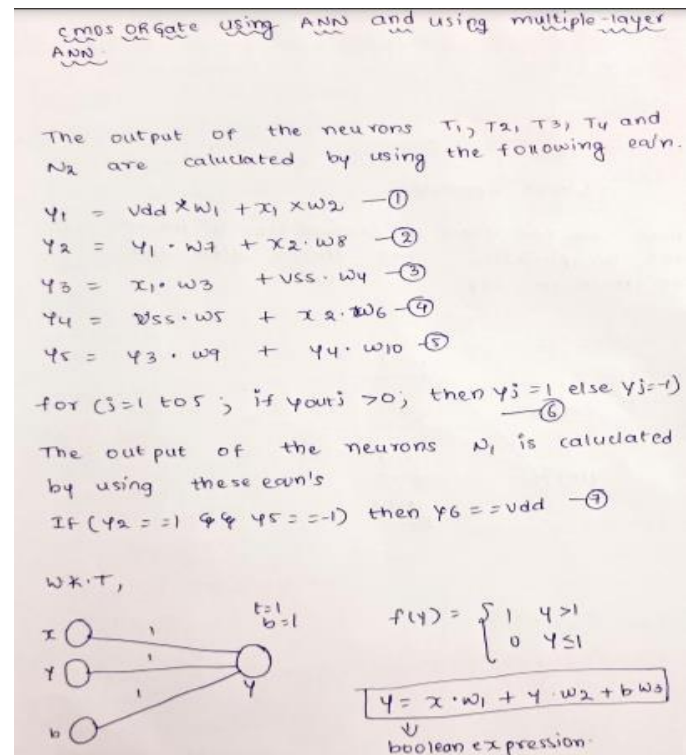 cmos OR Gate using ANN and using multiple-layer
ANN.
The output of the neurons T1, T2, T3, T4 and
N2 are caluclated by using the following ea/n.
Y1 = Vdd * W1 + x1 × W2 — ①
Y2 = Y1 · W7 + x2 · W8 — ②
Y3 = x1 · W3 + VSS · W4 — ③
Y4 = VSS · W5 + x2 · W6 — ④
Y5 = Y3 · W9 + Y4 · W10 — ⑤
for (j=1 to 5 ; if youtj >0; then yj = 1 else Yj=-1)
— ⑥
The output of the neurons N1 is caluclated
by using these eqn's
If (Y2 = =1 && Y5 = =-1) then Y6 = = Vdd — ⑦
W.K.T,
t=1
b=1
x 1
Y 1
b 1
Y
f(y) = { 1 y>1
0 y≤1
y = x · w1 + y · w2 + b w3
boolean expression.